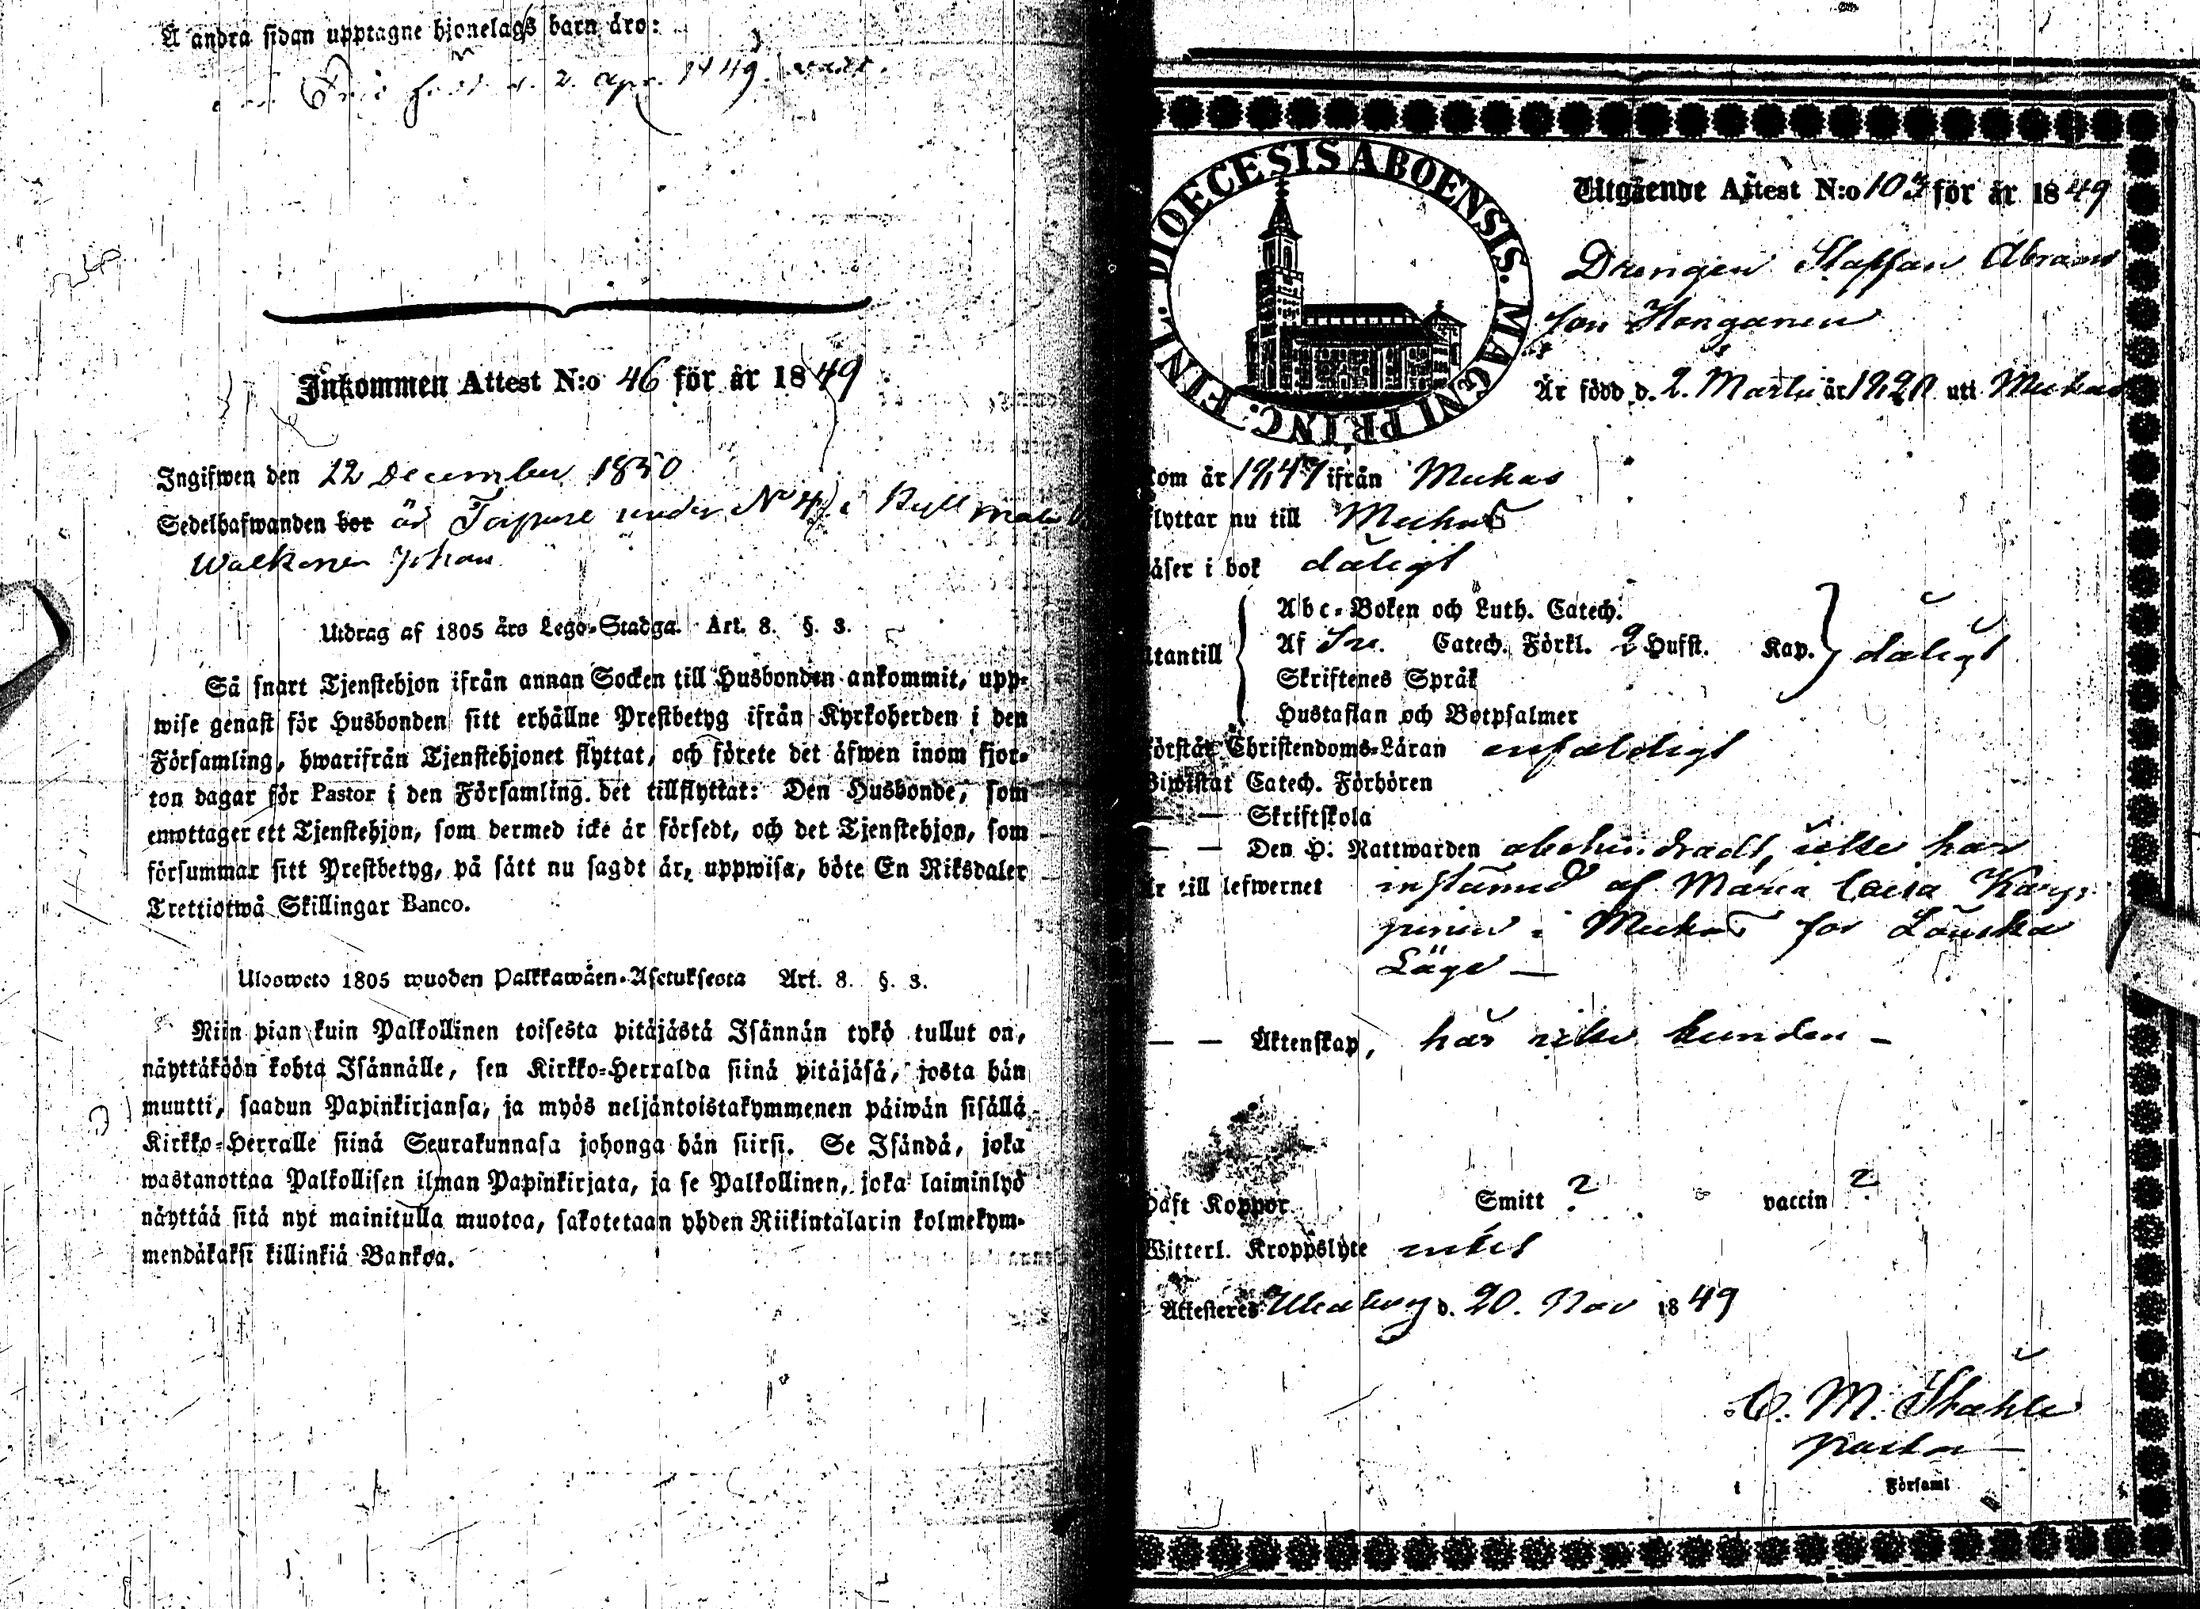 Å andra sidan upptagne hjonelags barn äro:
född d. 2. Apr. 1849.
Inkommen Attest N:o 46 för år 1849
Ingifwen den 22 December 1850
Sedelhafwanden bor är Torpare under No 4 i
Walkonen Johan
Utdrag af 1805 års Lego-Stadga. Art. 8. §. 3.
Så snart Tjenstehjon ifrån annan Socken till Husbonden ankommit, upp-
wise genast för Husbonden sitt erhållne Prestbetyg ifrån Kyrkoherden i den
Församling, hwarifrån Tjenstehjonet flyttat, och förete det äfwen inom fjor-
ton dagar för Pastor i den Församling det tillflyttat: Den Husbonde, som
emottager ett Tjenstehjon, som dermed icke är försedt, och det Tjenstehjon, som
försummar sitt Prestbetyg, på sätt nu sagdt är, uppwisa, böte En Riksdaler
Trettiotwå Skillingar Banco.
Ulosweto 1805 wuoden Palkkawäen-Asetuksesta Art. 8. §. 3.
Niin pian kuin Palkollinen toisesta pitäjästä Isännän tykö tullut on,
näyttäköön kohta Isännälle, sen Kirkko-Herralda siinä pitäjäsä, josta hän
muutti, saadun Papinkirjansa, ja myös neljäntoistakymmenen päiwän sisällä
Kirkko-Herralle siinä Seurakunnasa johonga hän siirsi. Se Isändä, joka
wastanottaa Palkollisen ilman Papinkirjata, ja se Palkollinen, joka laiminlyö
näyttää sitä nyt mainitulla muotoa, sakotetaan yhden Riikintalarin kolmekym-
mendäkaksi killinkiä Bankoa.
FINL. DIOECESIS ABOENSIS. MAGNI PRINC.
Utgående Attest N:o 103 för år 1849
Drengen Staffan Abrams
son Honganen
Är född d. 2. Martii år 182 uti
kom år 1847 ifrån
flyttar nu till
läser i bok dåligt
Abc-Boken och Luth. Catech.
Af Sv. Catech. Förkl. 2 Hufst. Kap. dåligt
utantill
Skriftenes Språk
Hustaflan och Botpsalmer
förstår Christendoms-Läran enfaldigt
Biwistat Catech. Förhören
— — Skriftskola
— — Den H. Nattwarden obehindradt, icke har
är till lefwernet instämd af Maria Caisa
i för Lönska
Läge —
— — Äktenskap, här icke bunden —
Haft Koppor Smitt ? vaccin ?
Witterl. Kroppslyte intet
Attesteres Uleaborg d. 20. Nov 1849
C. M. Ståhle
pastor
Församl